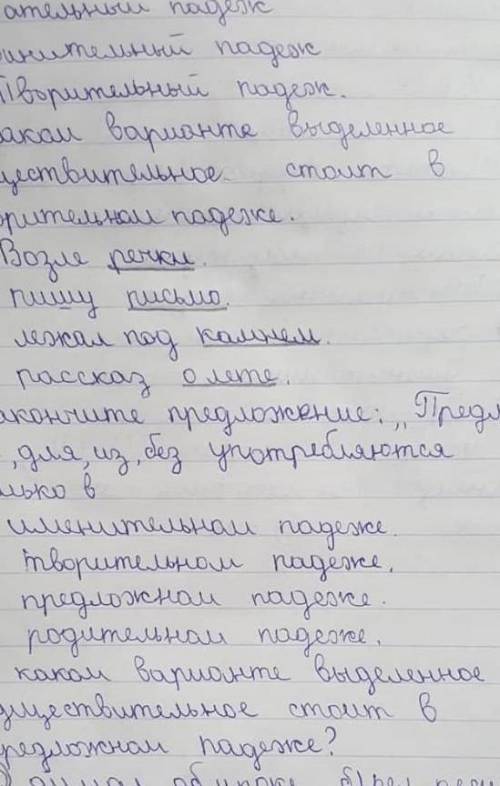 ательный падеж
инительный падеж
Творительный падеж.
аком варианте выделенное
уществительное стоит в
орительном падеже.
Возле речки.
пишу письмо.
лежал под камнем.
рассказ о лете.
акончите предложение: „Предл
, для, из, без употребляются
лько в
именительном падеже.
творительном падеже.
предложном падеже.
родительном падеже.
каком варианте выделенное
уществительное стоит в
редложном падеже?